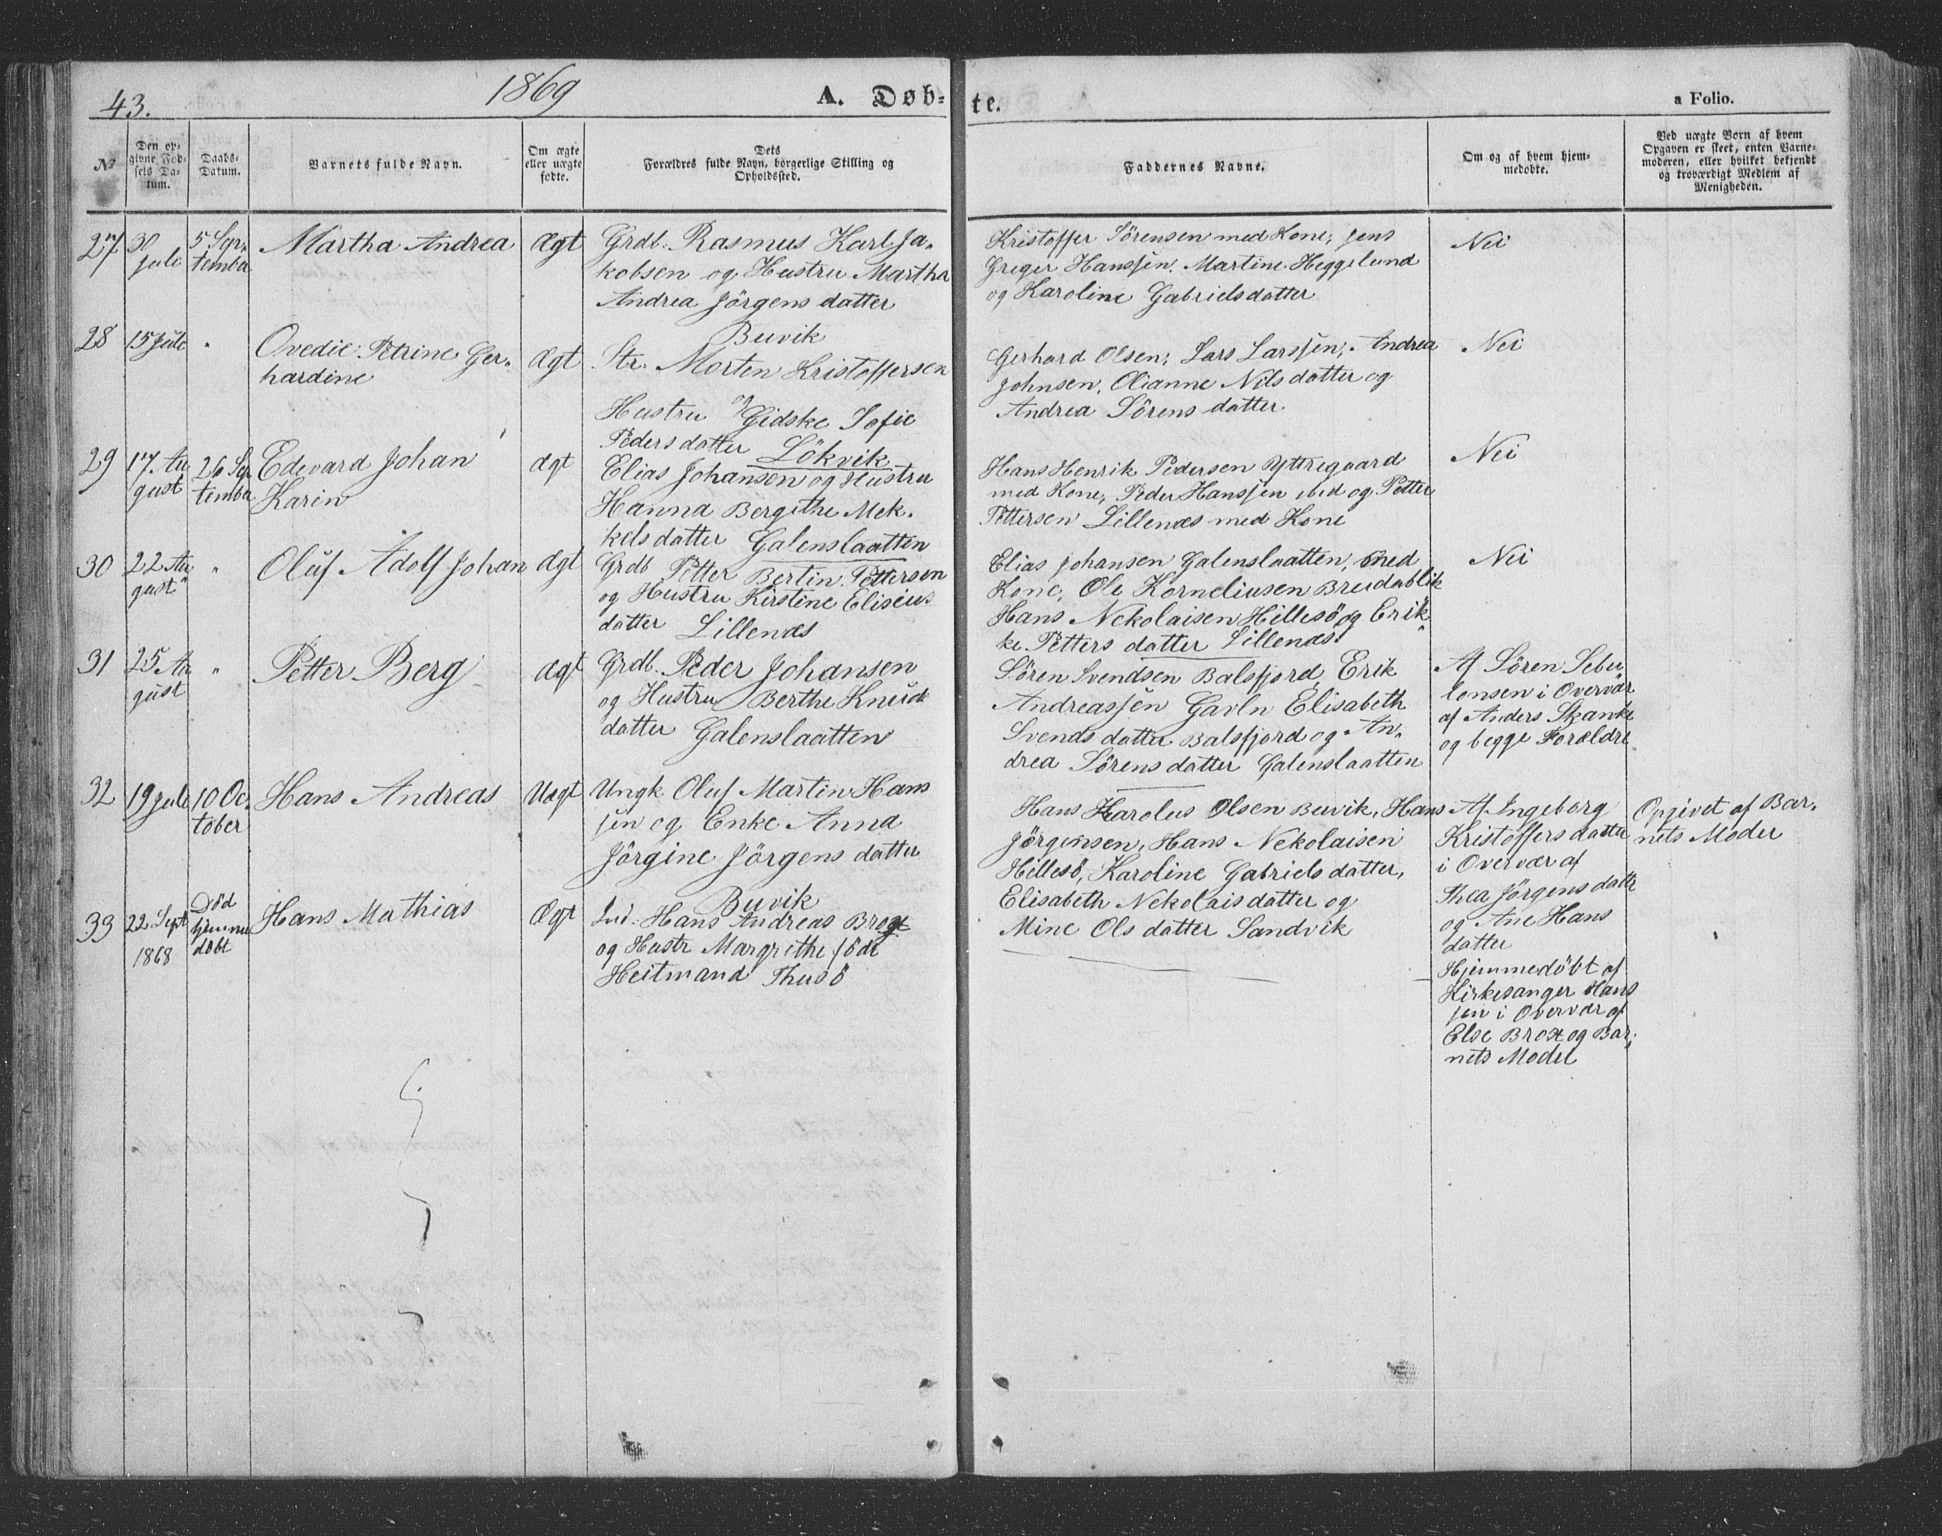 43.
1869
A. Døb-
te.
a Folio.
No
Den op-
givne Fød-
sels Da-
tum.
Daabs-
Datum.
Barnets fulde Navn.
Om ægte
eller uægte
fødte.
Dets
Forældres fulde Navn, borgerlige Stilling og
Opholdssted.
Faddernes Navne.
Om og af hvem hjem-
medøbte.
Ved uægte Børn af hvem
Opgaven er skeet, enten Barne-
moderen, eller hvilket bekjendt
og troværdigt Medlem af
Menigheden.
27
30
Juli
5 Sep-
tember
Martha Andrea
Ægt
Grdb. Rasmus Karl Ja-
kobsen og Hustru Martha
Andrea Jörgensdatter
Buvik
Kristoffer Sörensen med Kone, Jens
Greger Hanssen, Martine Heggelund
og Karoline Gabrielsdatter
Nei
28
15 Juli
"
Ovedie Petrine Ger-
hardine
Ægt
Str. Morten Kristoffersen
Hustru og Gidske Sofie
Pedersdatter Lökvik
Gerhard Olsen, Lars Larssen, Andrea
Johnsen, Olianne Nilsdatter og
Andrea Sörensdatter
Nei
29
17 Au
gust
26 Sep
tember
Edevard Johan
Karin
Ægt
Elias Johansen og Hustru
Hanna Bergithe Mek-
kelsdatter Galenslaatten
Hans Henrik Pedersen Yttregaard
med Kone, Peder Hanssen ibid og Petter
Pettersen Lillenæs med Kone
Nei
30
22 Au
gust
"
Oluf Adolf Johan
Ægt
Grdb Petter Bertin Pettersen
og Hustru Kirstine Eliseus
datter Lillenæs
Elias Johansen Galenslaatten, med
Kone, Ole Korneliusen Breidablik
Hans Nekolaisen Hillesö og Erik-
ke Pettersdatter Lillenæs
Nei
31
25 Au
gust
"
Petter Berg
Ægt
Grdb. Peder Johansen
og Hustru Berthe Knud
datter Galenslaatten
Sören Svendsen Balsfjord, Erik
Andreassen Elisabeth
Svendsdatter Balsfjord og An-
drea Sörensdatter Galenslaatten
Af Sören Sebu
lonsen i Overvær
af Anders Skanke
og begge Forældre
32
19 Juli
10 Oc
tober
Hans Andreas
Uægt
Ungk Oluf Martin Hans
sen og Enke Anna
Jörgine Jörgensdatter
Buvik
Hans Karolus Olsen Buvik, Hans
Jörgensen, Hans Nekolaisen
Hillesö, Karoline Gabrielsdatter,
Elisabeth Nekolaisdatter og
Mine Olsdatter Sandvik
Af Ingeborg
Kristoffersdatter
i Overvær af
Thea Jörgensdatter
og Ane Hans
datter
Opgivet af Bar-
nets Moder
33
22 Sept
1868
Död
hjemme
döbt
Hans Mathias
Ægt
Hans Andreas Brox
og Hustr Margrithe föde
Heitmand Thusö
Hjemmedöbt af
Kirkesanger Hans
sen i Overvær af
Else Brox og Bar-
nets Moder